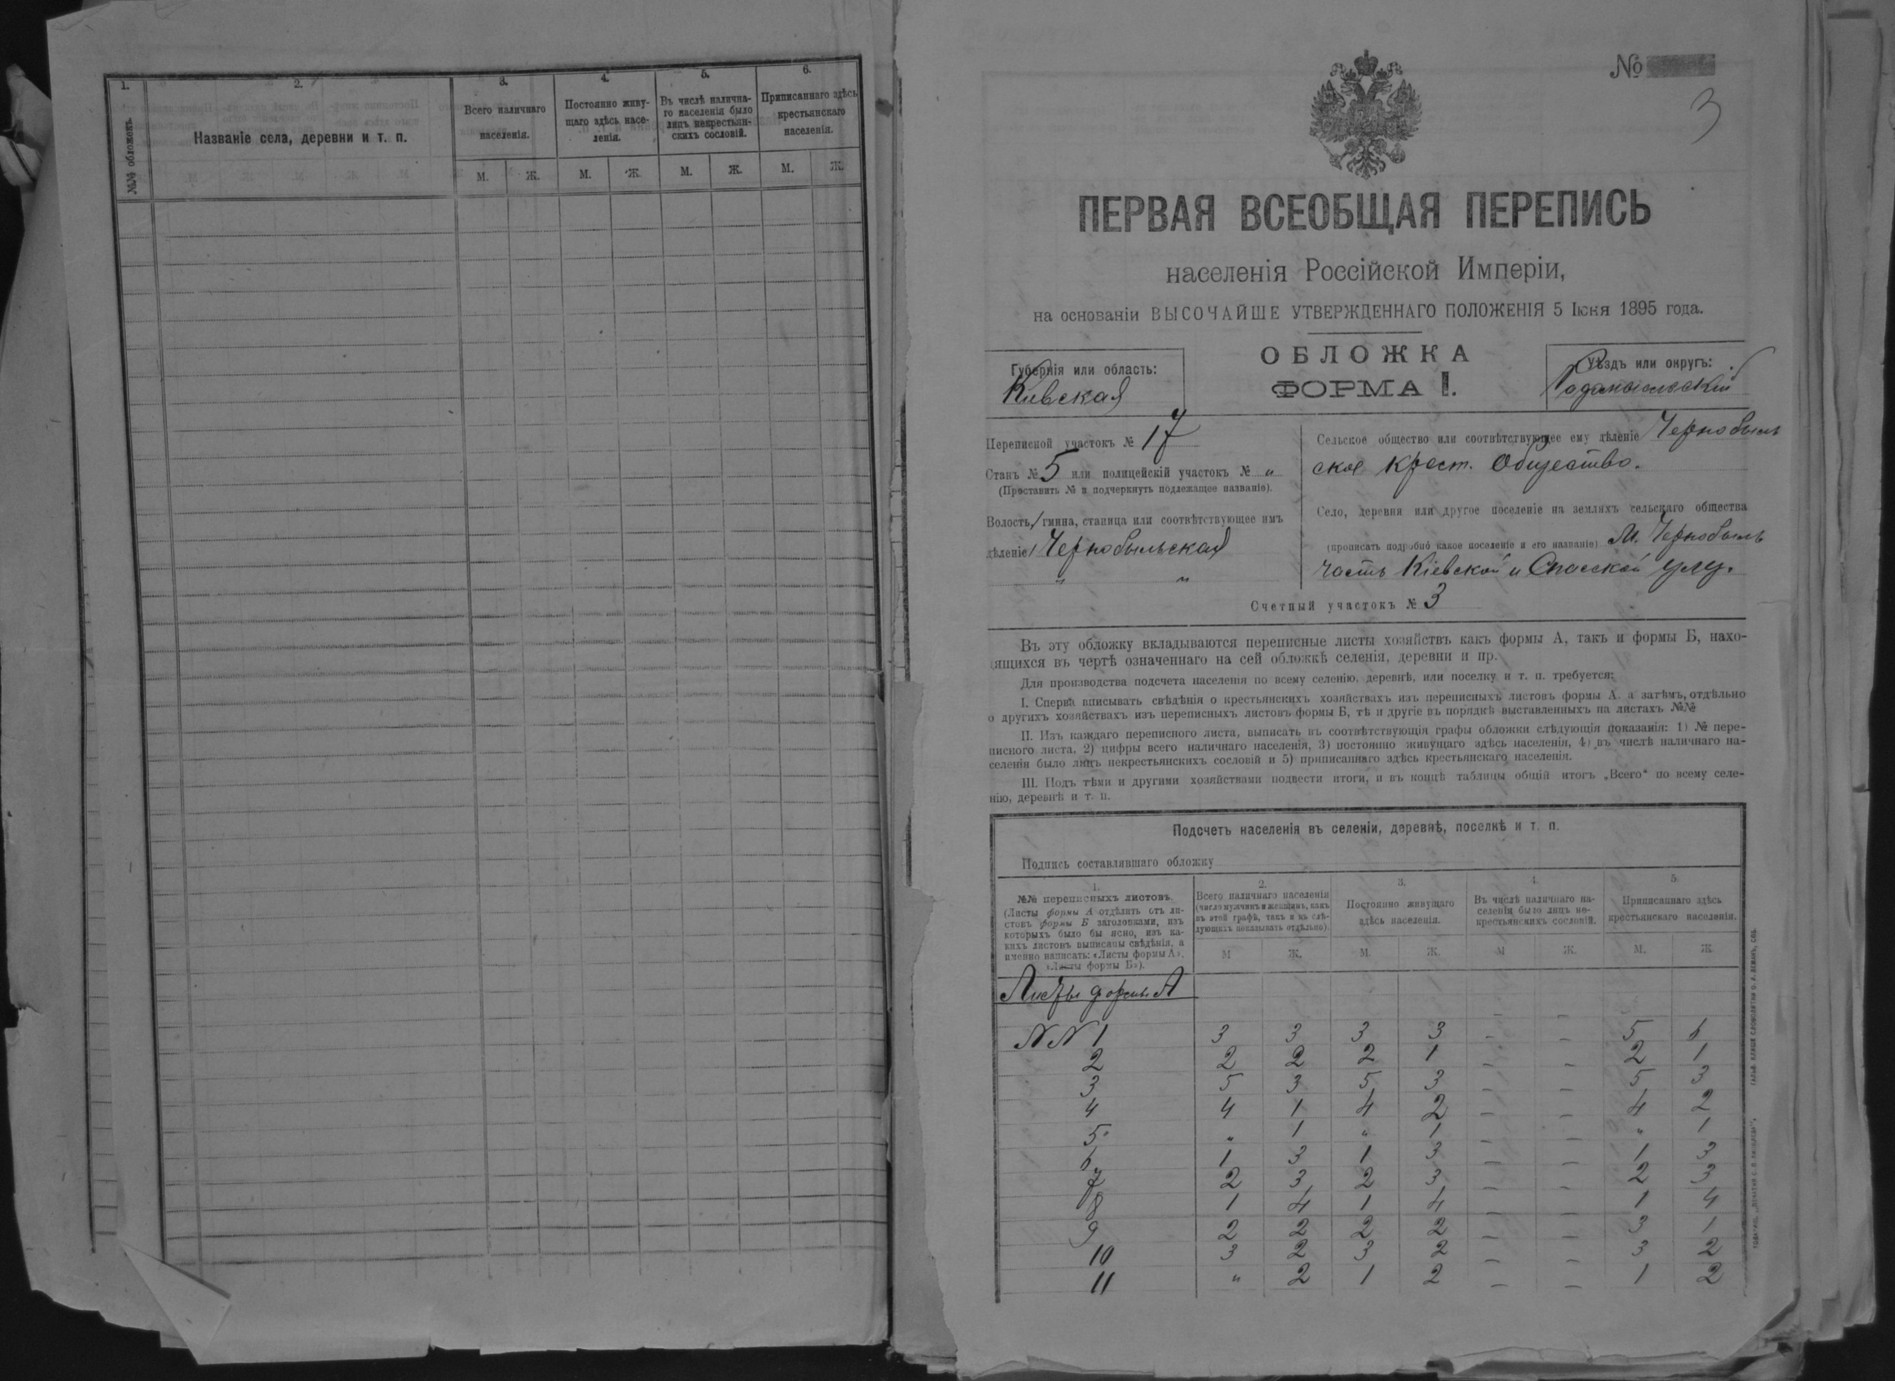 1. 2. 3. 4. 5. 6.
№№ обложекъ.
Названіе села, деревни и т. п.
Всего наличнаго населенія.
Постоянно живущаго здѣсь населенія.
Въ числѣ наличнаго населенія было лицъ некрестьянскихъ сословій.
Приписаннаго здѣсь крестьянскаго населенія.
М. Ж. М. Ж. М. Ж. М. Ж.
№
3
ПЕРВАЯ ВСЕОБЩАЯ ПЕРЕПИСЬ
населенія Россійской Имперіи,
на основаніи ВЫСОЧАЙШЕ УТВЕРЖДЕННАГО ПОЛОЖЕНІЯ 5 Іюня 1895 года.
ОБЛОЖКА
ФОРМА I.
Губернія или область:
Кивская
Уѣздъ или округъ:
Радомысльскій
Переписной участокъ № 17
Станъ № 5 или полицейскій участокъ № „
(Проставить № и подчеркнуть подлежащее названіе).
Волость, гмина, станица или соотвѣтствующее имъ
дѣленіе) Чернобыльская
„ „
Сельское общество или соотвѣтствующее ему дѣленіе Чернобыль
ское крест. Общество.
Село, деревня или другое поселеніе на земляхъ сельскаго общества
(прописать подробно какое поселеніе и его названіе) М. Чернобыль
часть Кіевской и Спасской улу.
Счетный участокъ № 3
Въ эту обложку вкладываются переписные листы хозяйствъ какъ формы А, такъ и формы Б, нахо-
дящихся въ чертѣ означеннаго на сей обложкѣ селенія, деревни и пр.
Для производства подсчета населенія по всему селенію, деревнѣ, или поселку и т. п. требуется:
I. Сперва вписывать свѣдѣнія о крестьянскихъ хозяйствахъ изъ переписныхъ листовъ формы А, а затѣмъ, отдѣльно
о другихъ хозяйствахъ изъ переписныхъ листовъ формы Б, тѣ и другіе въ порядкѣ выставленныхъ на листахъ №№
II. Изъ каждаго переписного листа, выписать въ соотвѣтствующія графы обложки слѣдующія показанія: 1) № пере-
писного листа, 2) цифры всего наличнаго населенія, 3) постоянно живущаго здѣсь населенія, 4) въ числѣ наличнаго на-
селенія было лицъ некрестьянскихъ сословій и 5) приписаннаго здѣсь крестьянскаго населенія.
III. Подъ тѣми и другими хозяйствами подвести итоги, и въ концѣ таблицы общій итогъ „Всего“ по всему селе-
нію, деревнѣ и т. п.
Подсчетъ населенія въ селеніи, деревнѣ, поселкѣ и т. п.
Подпись составлявшаго обложку
1. 2. 3. 4. 5.
№№ переписныхъ листовъ.
(Листы формы А отдѣлить отъ ли-
стовъ формы Б заголовками, изъ
которыхъ было бы ясно, изъ ка-
кихъ листовъ выписаны свѣдѣнія, а
именно написать: «Листы формы А»,
«Листы формы Б»).
Всего наличнаго населенія
(число мужчинъ и женщинъ, какъ
въ этой графѣ, такъ и въ слѣ-
дующихъ показывать отдѣльно).
Постоянно живущаго
здѣсь населенія.
Въ числѣ наличнаго на-
селенія было лицъ не-
крестьянскихъ сословій.
Приписаннаго здѣсь
крестьянскаго населенія.
М Ж. М. Ж. М Ж. М. Ж.
Листы формы А
NN 1 3 3 3 3 - - 5
2 2 2 2 1 - - 2 1
3 5 3 5 3 - - 5 3
4 4 1 4 2 - - 4 2
5 „ 1 „ 1 - - „ 1
6 1 3 1 3 - - 1 3
7 2 3 2 3 - - 2 3
8 1 4 1 4 - - 1 4
9 2 2 2 2 - - 3 1
10 3 2 3 2 - - 3 2
11 „ 2 1 2 - - 1 2